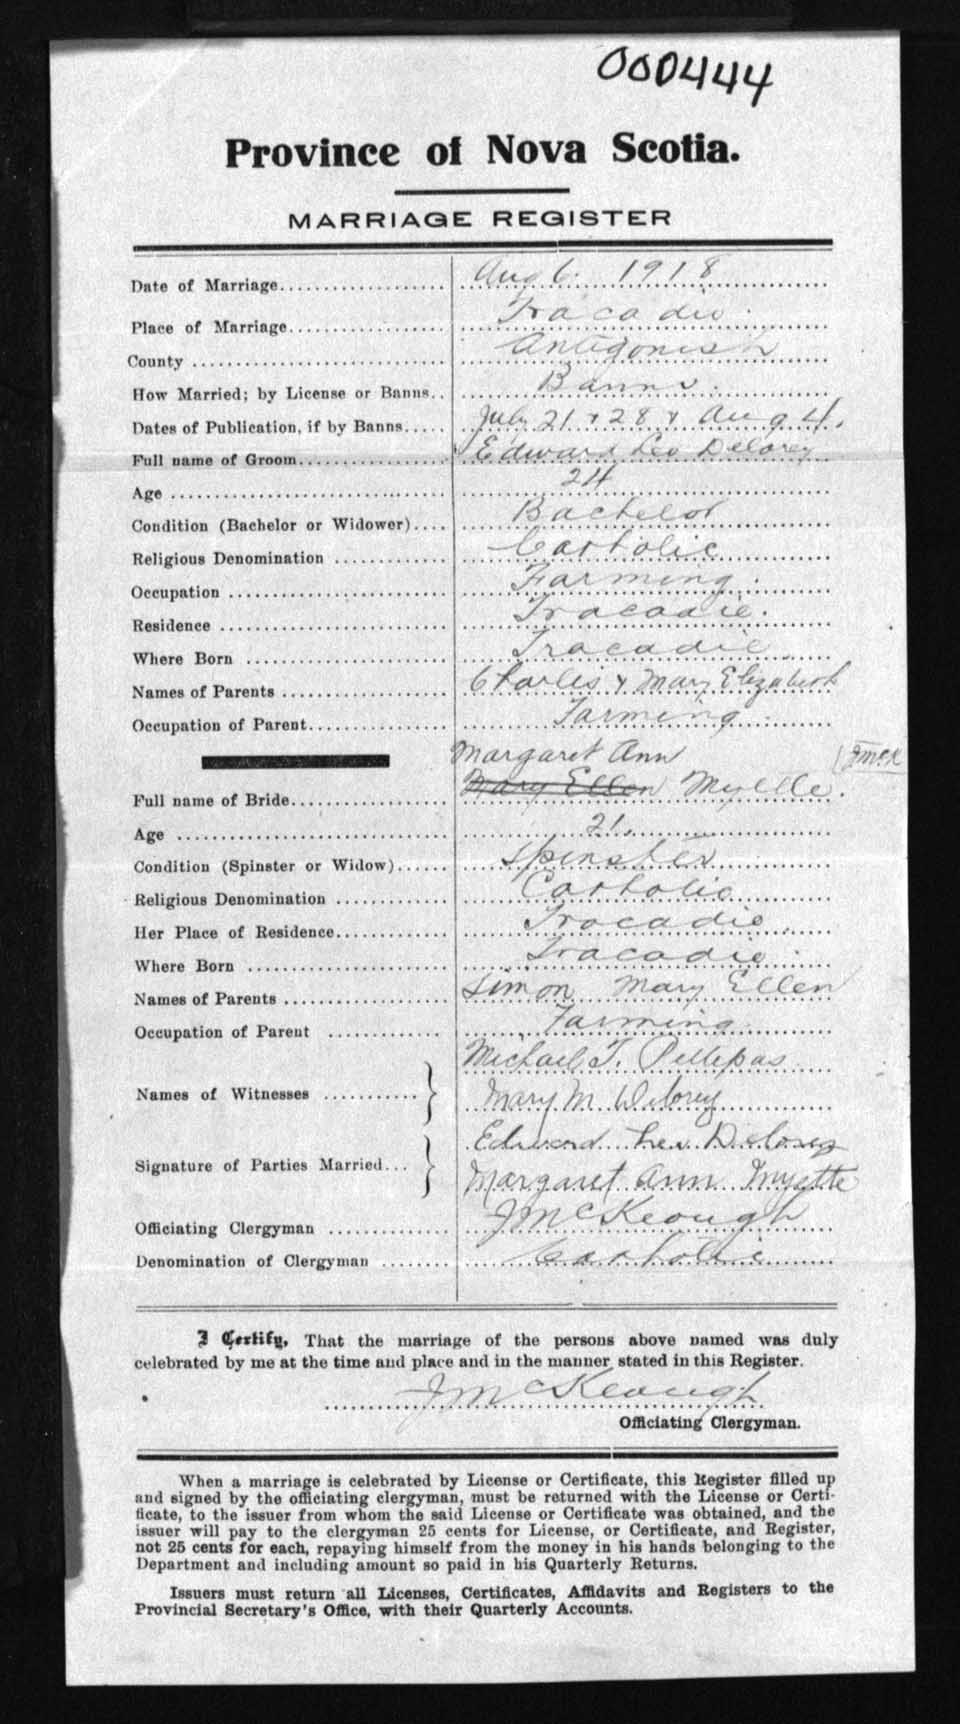 000444
Province of Nova Scotia.
MARRIAGE REGISTER
Date of Marriage.................. Aug 6. 1918
Place of Marriage.................. Tracadie.
County .......................... Antigonish
How Married; by License or Banns.. Banns.
Dates of Publication, if by Banns..... July 21 & 28 & Aug 4.
Full name of Groom................ Edward Leo Delorey
Age ............................. 24
Condition (Bachelor or Widower).... Bachelor
Religious Denomination ............ Catholic
Occupation ........................ Farming.
Residence ......................... Tracadie.
Where Born ...................... Tracadie
Names of Parents .................. Charles & Mary Elizabeth
Occupation of Parent............... Farming
Margaret Ann
JMcK
Full name of Bride................. Mary Ellen Myette.
Age .............................. 21.
Condition (Spinster or Widow)...... Spinster
Religious Denomination ............ Catholic
Her Place of Residence............. Tracadie
Where Born ...................... Tracadie.
Names of Parents .................. Simon Mary Ellen
Occupation of Parent ............. Farming
Michael T. Pettipas
Names of Witnesses ...........
Mary M. Delorey
Edward Leo Delorey
Signature of Parties Married...
Margaret Ann Myette
Officiating Clergyman ............. J McKeough
Denomination of Clergyman ........ Catholic
I Certify, That the marriage of the persons above named was duly
celebrated by me at the time and place and in the manner stated in this Register.
J McKeough
Officiating Clergyman.
When a marriage is celebrated by License or Certificate, this Register filled up
and signed by the officiating clergyman, must be returned with the License or Certi-
ficate, to the issuer from whom the said License or Certificate was obtained, and the
issuer will pay to the clergyman 25 cents for License, or Certificate, and Register,
not 25 cents for each, repaying himself from the money in his hands belonging to the
Department and including amount so paid in his Quarterly Returns.
Issuers must return all Licenses, Certificates, Affidavits and Registers to the
Provincial Secretary's Office, with their Quarterly Accounts.